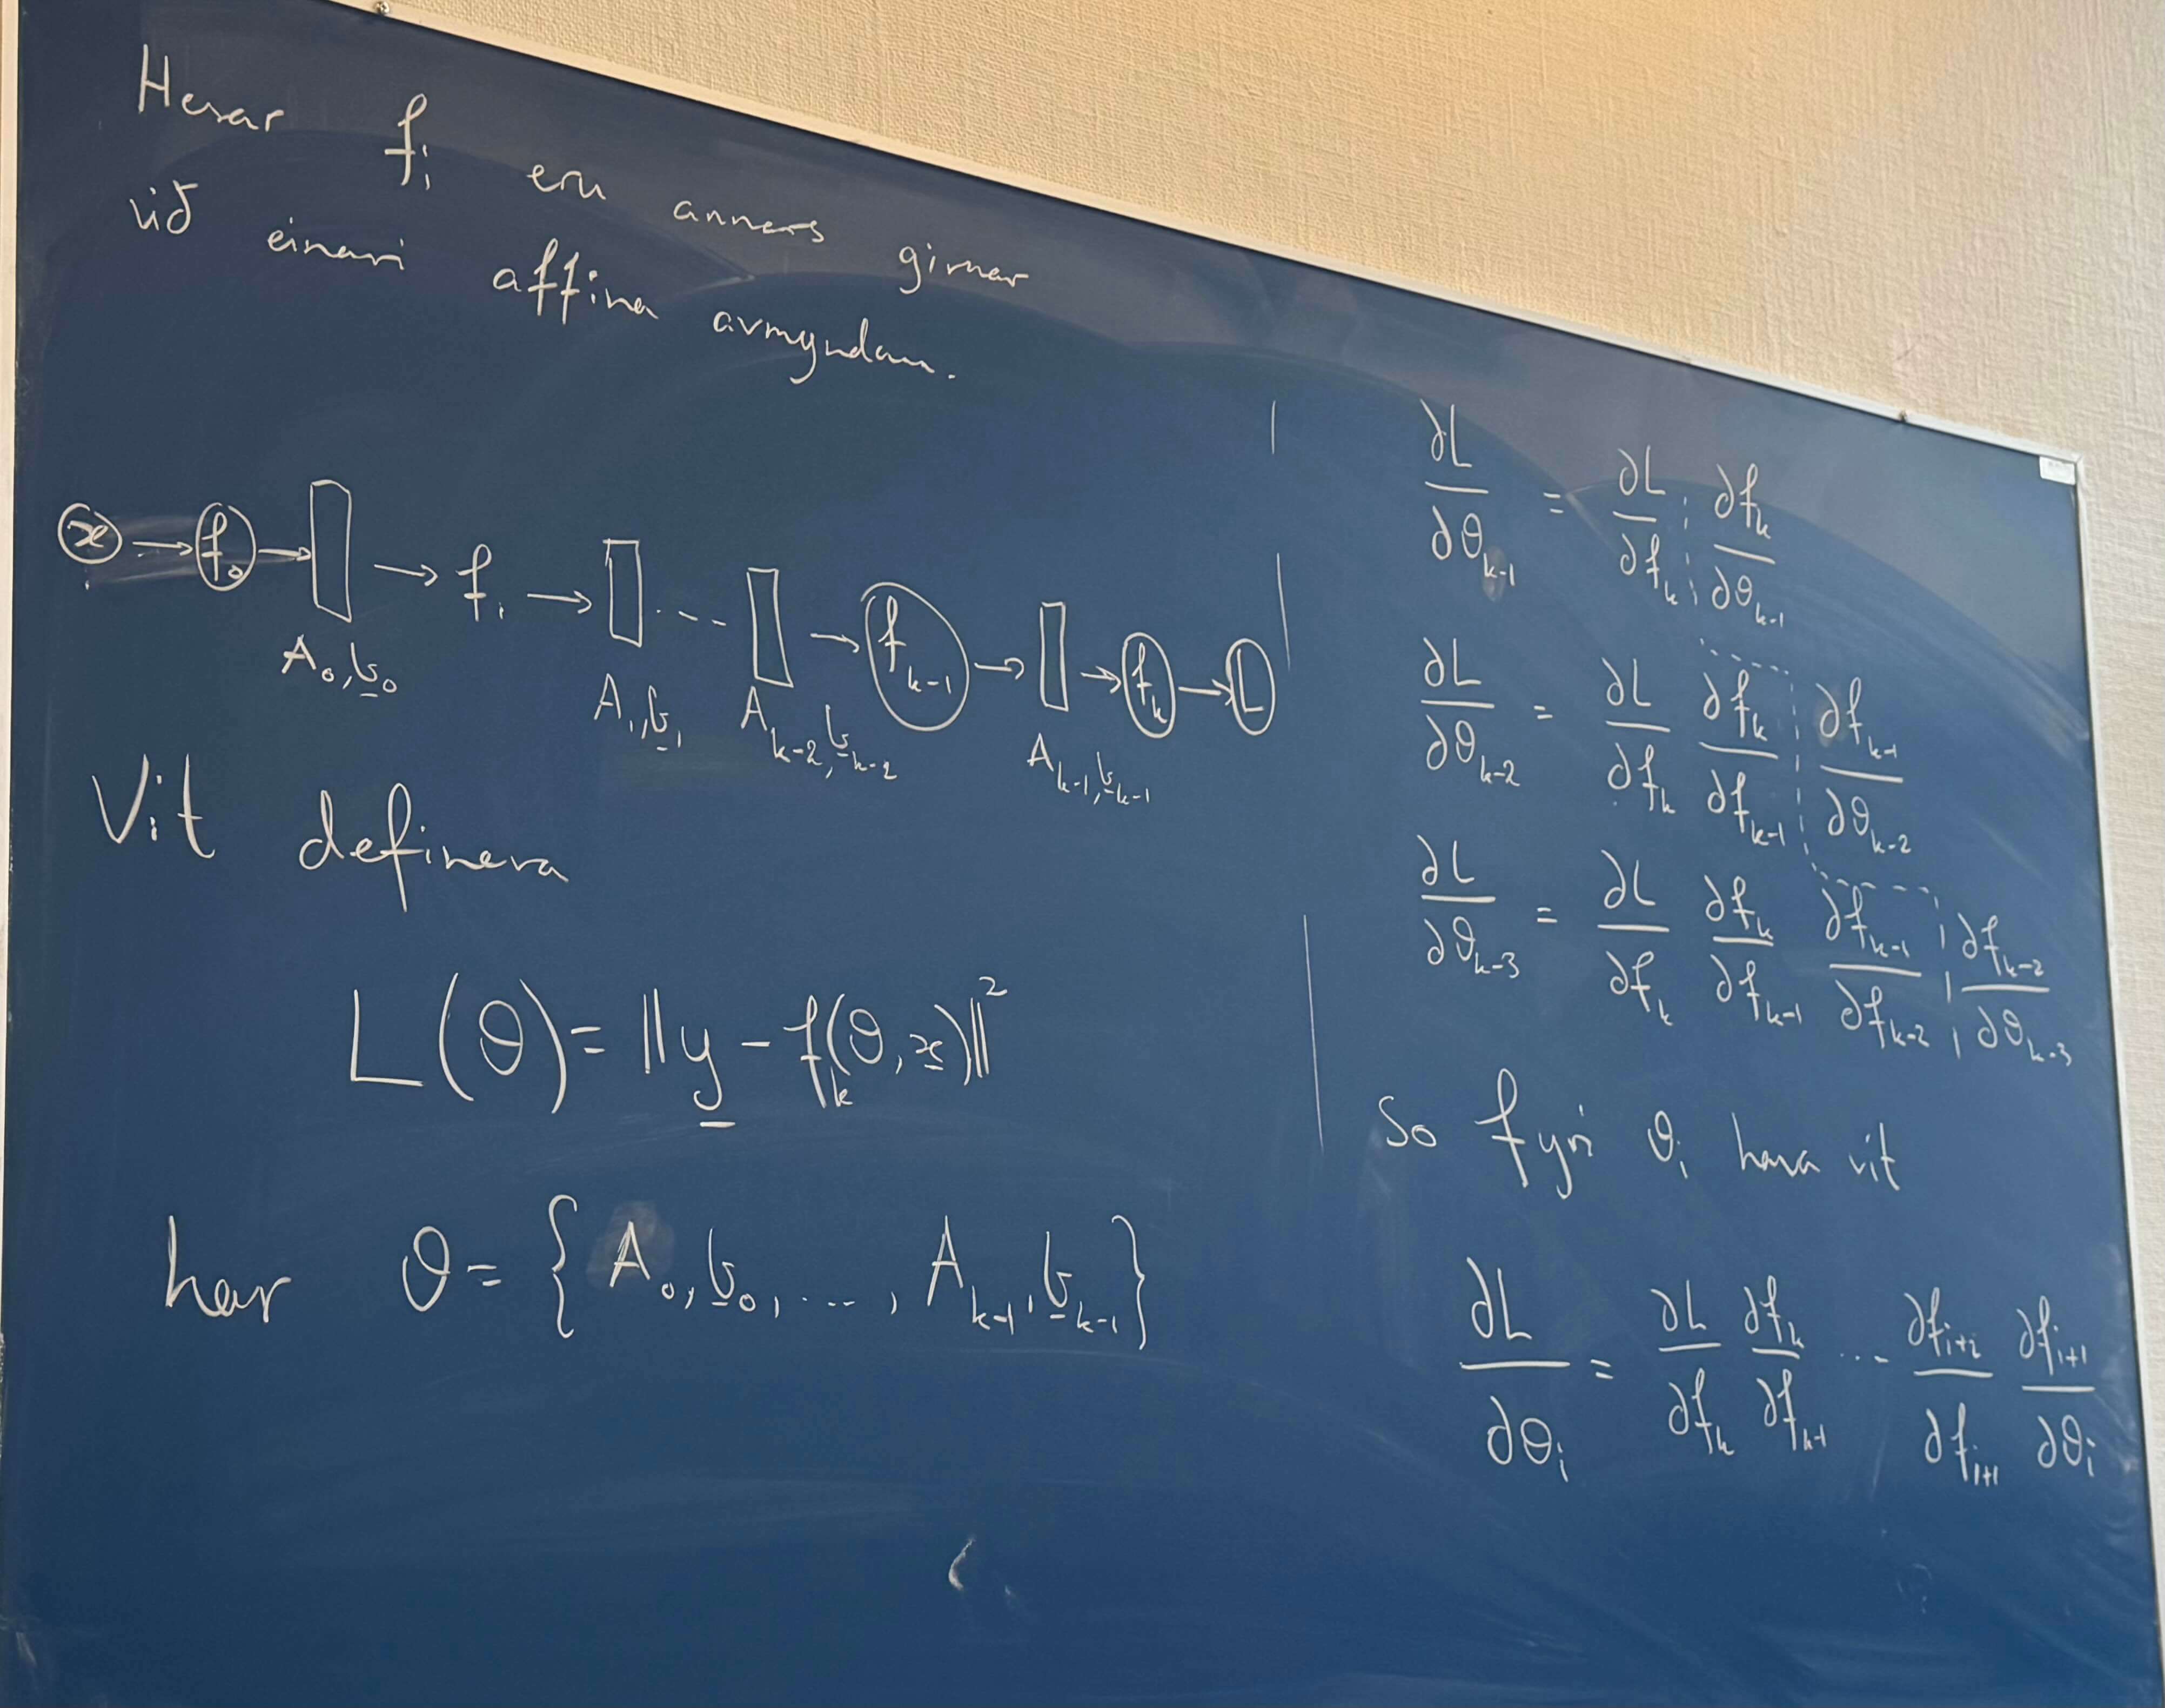 Hesar f_i eru anners girnar
við einari affina avmyndan.
x → f_0 → A_0, b_0 → f_1 → A_1, b_1 ... A_{k-2}, b_{k-2} → f_{k-1} → A_{k-1}, b_{k-1} → f_k → L
Vit definera
L(θ) = ‖y - f_k(θ, x)‖²
har θ = {A_0, b_0, ..., A_{k-1}, b_{k-1}}
∂L/∂θ_{k-1} = ∂L/∂f_k ∂f_k/∂θ_{k-1}
∂L/∂θ_{k-2} = ∂L/∂f_k ∂f_k/∂f_{k-1} ∂f_{k-1}/∂θ_{k-2}
∂L/∂θ_{k-3} = ∂L/∂f_k ∂f_k/∂f_{k-1} ∂f_{k-1}/∂f_{k-2} ∂f_{k-2}/∂θ_{k-3}
So fyri θ_i hava vit
∂L/∂θ_i = ∂L/∂f_k ∂f_k/∂f_{k-1} ... ∂f_{i+2}/∂f_{i+1} ∂f_{i+1}/∂θ_i